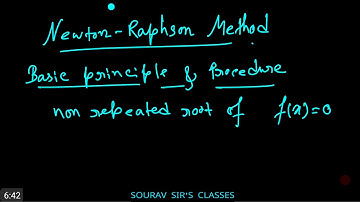 Newton-Raphson Method
Basic principle & Procedure
non repeated root of f(x)=0
SOURAV SIR'S CLASSES
6:42